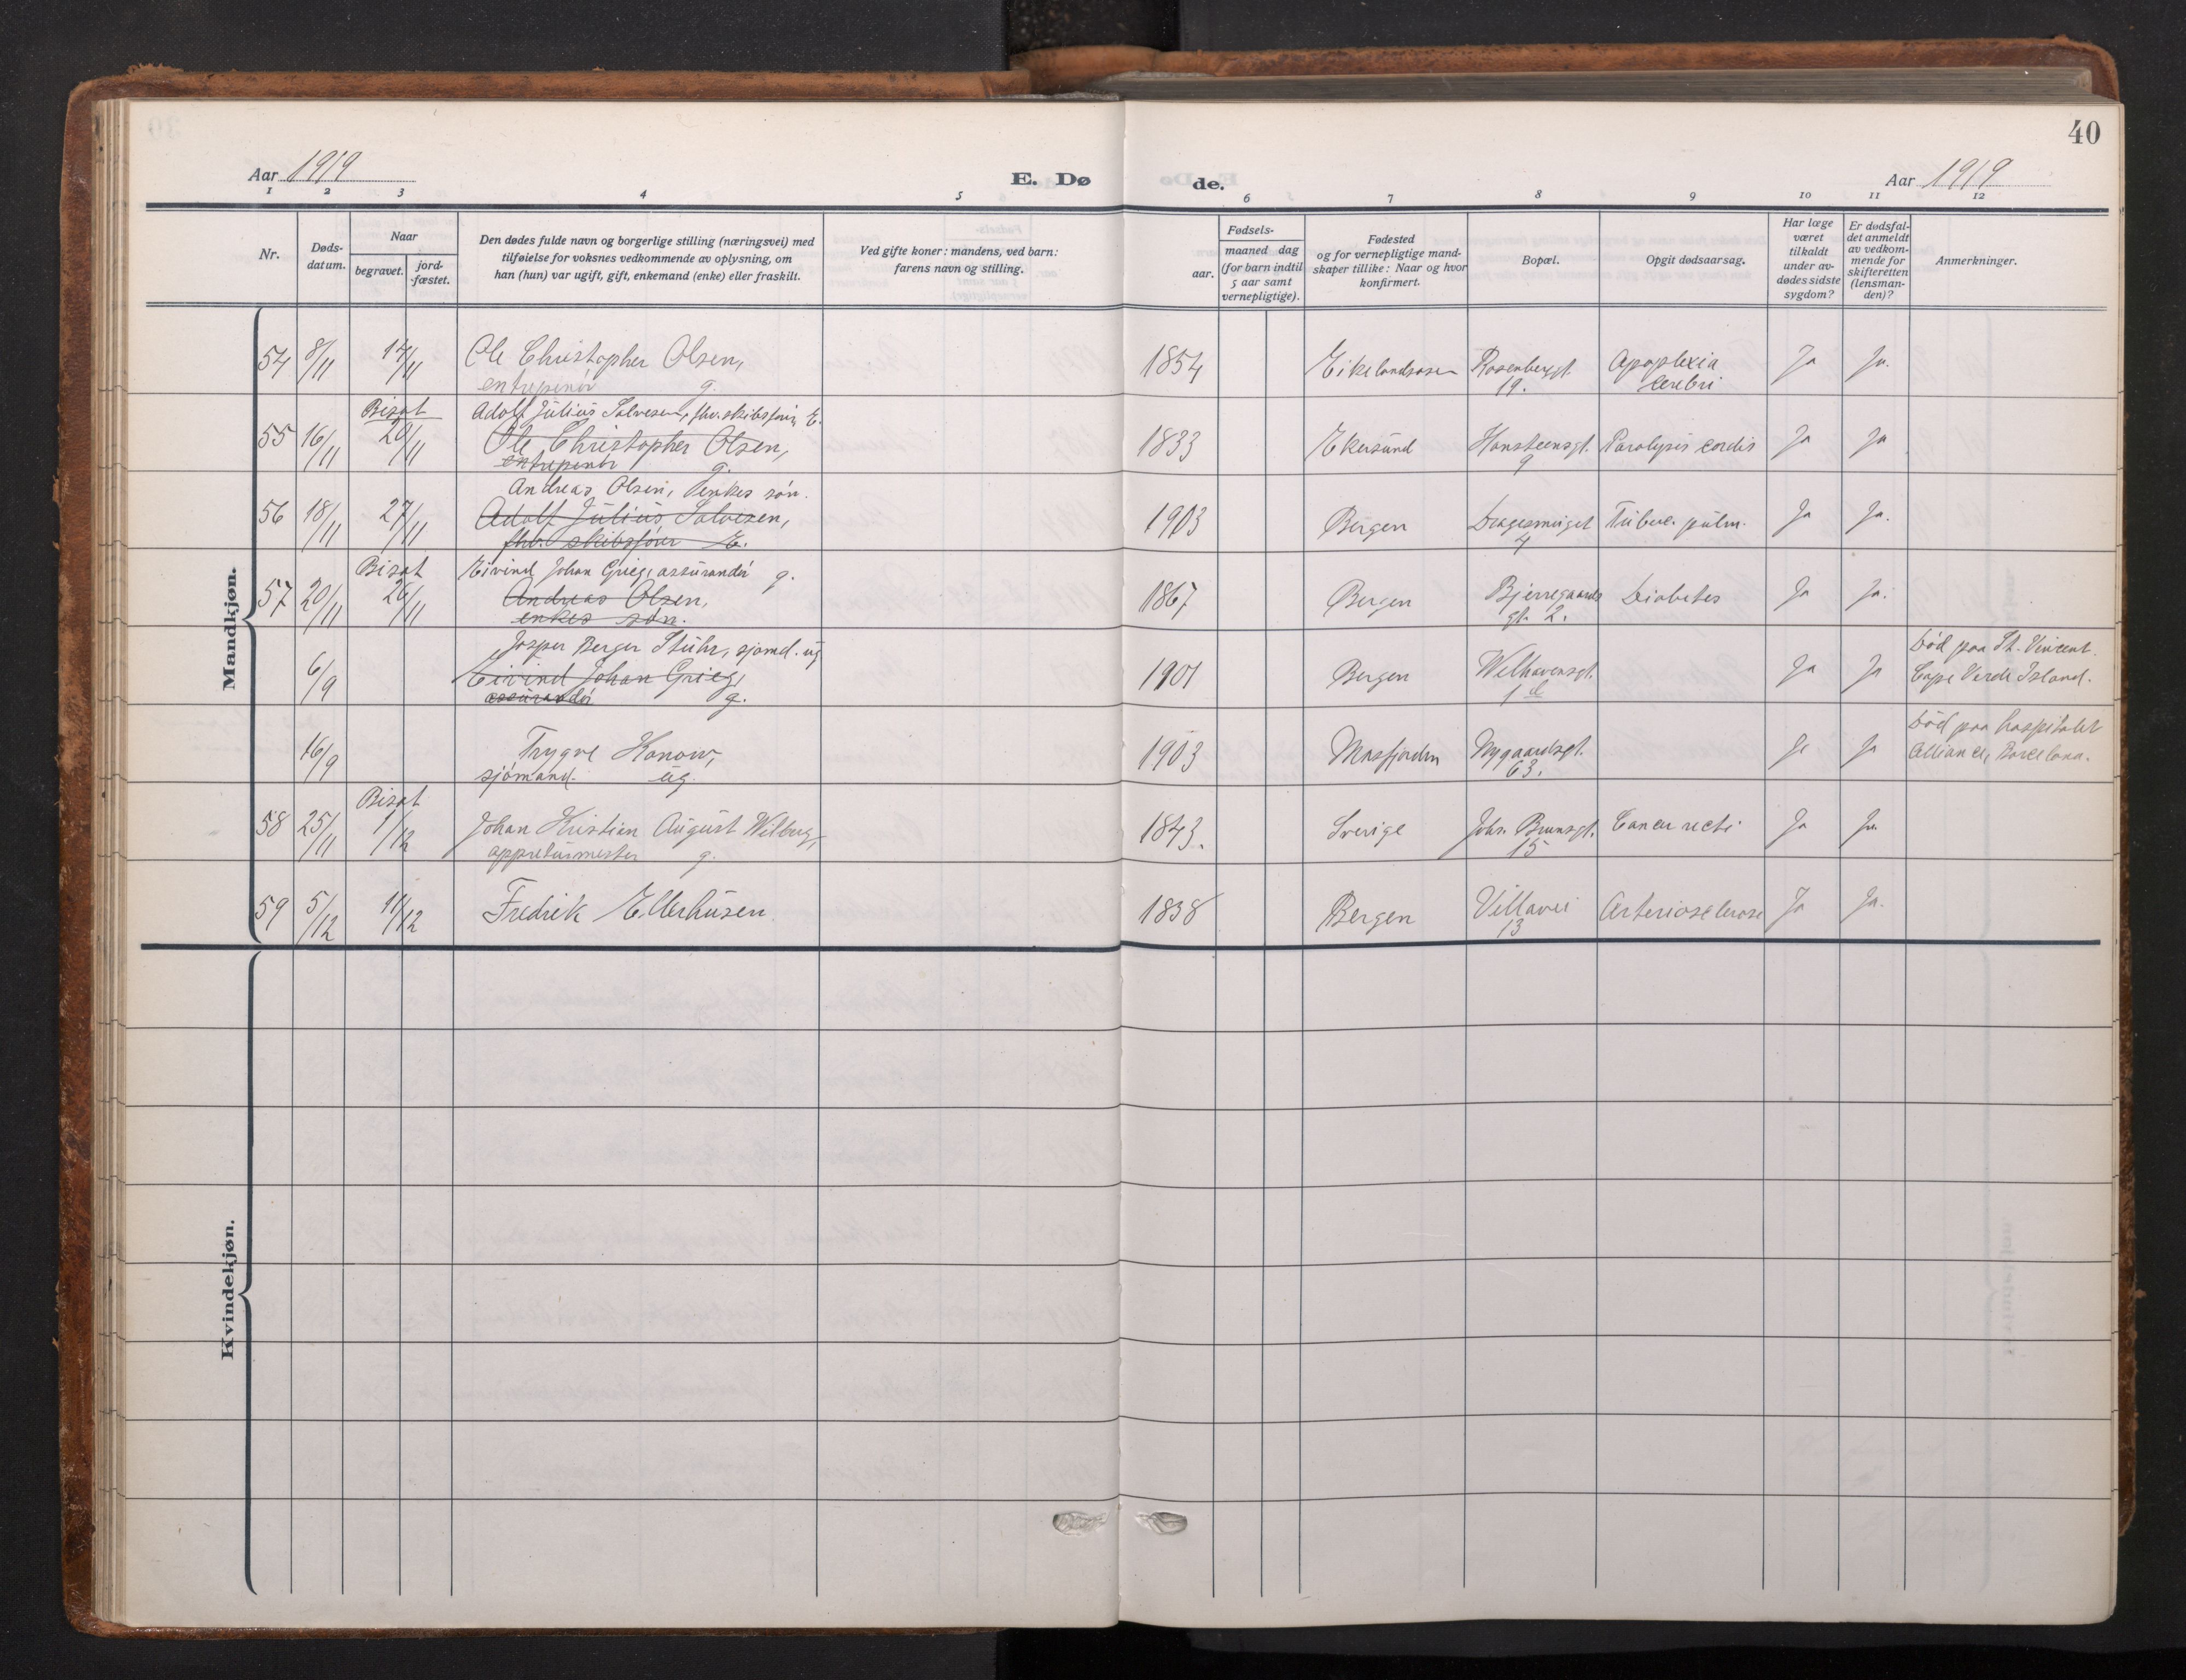 40
Aar 1919
E. Dø de.
Aar 1919
1 2 3 4 5 6 7 8 9 10 11 12
Nr.
Døds-
datum.
Naar
begravet.
jord-
-fæstet.
Den dødes fulde navn og borgerlige stilling (næringsvei) med
tilføielse for voksnes vedkommende av oplysning, om
han (hun) var ugift, gift, enkemand (enke) eller fraskilt.
Ved gifte koner: mandens, ved barn:
farens navn og stilling.
Fødsels-
aar.
maaned dag
(for barn indtil
5 aar samt
vernepligtige).
Fødested
og for vernepligtige mand-
skaper tillike: Naar og hvor
konfirmert.
Bopæl.
Opgit dødsaarsag.
Har læge
været
tilkaldt
under av-
dødes sidste
sygdom?
Er dødsfal-
det anmeldt
av vedkom-
mende for
skifteretten
(lensman-
den)?
Anmerkninger.
Mandkjøn.
54 8/11 14/11 Ole Christopher Olsen, 1854 Eikelandsosen Rosenberggt. Apoplexia Ja Ja.
entrepenör g. 19. Cerebri
Bisat Adolf Julius Salvesen, fhv. skibsförer, E.
55 16/11 20/11 Ole Christopher Olsen, 1833 Ekersund Hansteensgt. Paralysis cordis Ja Ja
entrepenör g. 9
Andreas Olsen, enkes sön.
56 18/11 27/11 Adolf Julius Salvesen, 1903 Bergen Dragesmuget Tuberc. pulm. Ja Ja.
fhv. skibsförer E. 4
Bisat Eivind Johan Grieg, assurandör g.
57 20/11 26/11 Andreas Olsen, 1867 Bergen Bjerregaards Diabetes Ja Ja.
enkes sön. gt. 2.
Jasper Berger Stuhr, sjömd. ug Död paa St. Vincent.
6/9 Eivind Johan Grieg, 1901 Bergen Welhavensgt. Ja Ja Cape Verde Island.
assurandör g. 1 d
Död paa hospitalet
16/9 Trygve Konow, 1903 Masfjorden Nygaardsgt. Ja Ja Alliance, Barcelona.
sjömand. ug. 63.
Bisat
58 25/11 1/12 Johan Kristian August Wilberg, 1843. Sverige Johs. Brunsgt. Cancer recti Ja Ja
appreturmester g. 15
59 5/12 11/12 Fredrik Ellerhusen. 1838 Bergen Villavei Arteriosclerose Ja Ja.
13
Kvindekjøn.